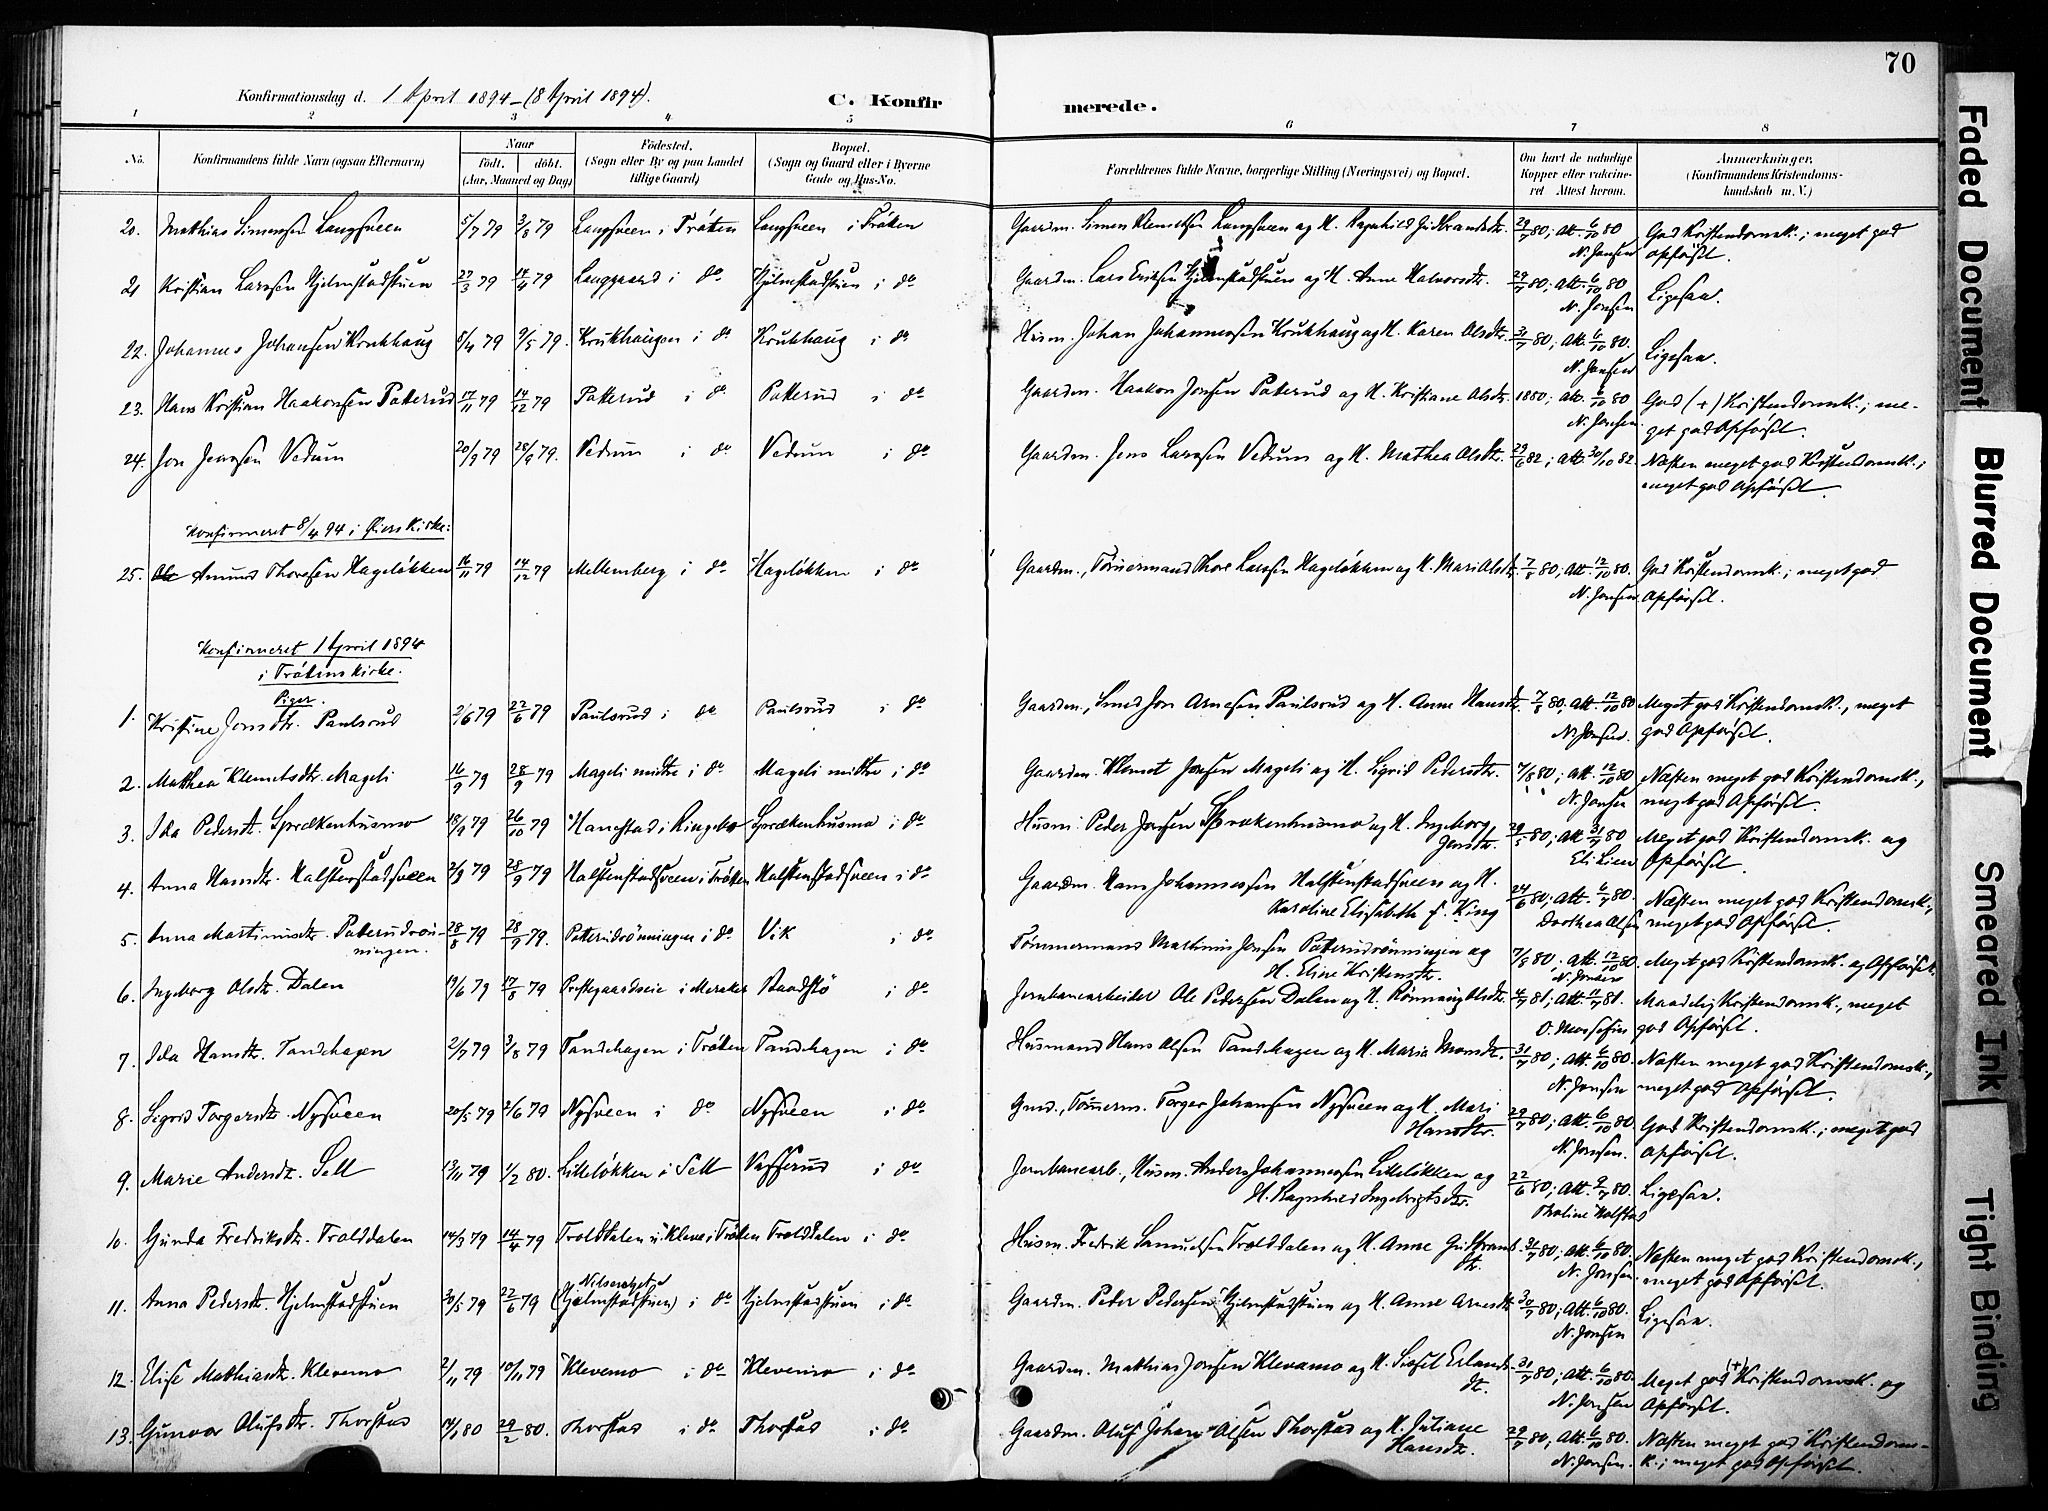 70
Konfirmationsdag d. 1 April 1894 – (8 April 1894).
C. Konfirmerede.
1 2 3 4 5 6 7 8
No. Konfirmandens fulde Navn (ogsaa Efternavn) Naar født. døbt. (Aar, Maaned og Dag) Fødested. (Sogn eller By og paa Landet tillige Gaard) Bopæl. (Sogn og Gaard eller i Byerne Gade og Hus-No. Forældrenes fulde Navne, borgerlige Stilling (Næringsvei) og Bopæl. Om havt de naturlige Kopper eller vaccineret Attest herom. Anmærkninger. (Konfirmandens Kristendomskundskab m. V.)
20. Mathias Simensen Langsveen 5/7 79 3/8 79 Langsveen i Trøten Langsveen i Trøten Gaardm. Simen Klemetsen Langsveen og H. Ragnhild Gudbrandsdtr. 29/7 80; Att. 6/10 80 N. Jonsen God Kristendomsk.; meget god Opførsel.
21 Kristian Larssen Hjelmstadstuen 27/3 79 14/4 79 Langgaard i do Hjelmstadstuen i do Gaardm. Lars Eriksen Hjelmstadstuen og H. Anne Halvorsdtr. 29/7 80; Att. 6/10 80 N. Jonsen Ligesaa.
22. Johannes Johansen Krukhaug 8/4 79 9/5 79. Krukhaugen i do Krukhaug i do Husm. Johan Johannessen Krukhaug og H. Karen Olsdtr. 31/7 80; Att. 6/10 80. N. Jonsen Ligesaa.
23. Hans Kristian Haakonsen Paterud 17/11 79 14/12 79 Paterud i do Paterud i do Gaardm. Haakon Jonsen Paterud og H. Kristiane Olsdtr. 1880; Att. 6/10 80 N. Jonsen. God (+) Kristendomsk.; meget god Opførsel.
24. Jon Jenssen Vedum 20/9 79 28/9 79. Vedum i do Vedum i do Gaardm. Jens Larssen Vedum og H. Mathea Olsdtr. 29/6 82; Att. 30/10 82. Næsten meget god Kristendomsk.; meget god Opførsel.
Konfirmeret 8/4 94 i Øiers Kirke:
25. Amund Thoresen Hageløkken 16/11 79 14/12 79 Mellemberg i do Hageløkken i do Gaardm., Tømmermand Thore Larssen Hageløkken og H. Mari Olsdtr. 7/8 80; Att. 12/10 80. N. Jonsen God Kristendomsk.; meget god Opførsel.
Konfirmeret 1 April 1894
i Trøtens Kirke.
Piger.
1. Kristine Jonsdtr. Paulsrud 2/6 79 22/6 79 Paulsrud i do Paulsrud i do Gaardm., Smed Jon Arnesen Paulsrud og H. Anne Hansdtr. 7/8 80; Att. 12/10 80 N. Jonsen. Meget god Kristendomsk., meget god Opførsel.
2. Mathea Klemetsdtr. Mageli 16/9 79 28/9 79 Mageli midtre i do Mageli midtre i do Gaardm. Klemet Jonsen Mageli og H. Sigrid Pedersdtr. 7/8 80; Att. 12/10 80 N. Jonsen Næsten meget god Kristendomsk., meget god Opførsel.
3. Ida Pedersdtr. Sprækenhusmo 18/9 79 26/10 79 Hanestad i Ringebo Sprækenhusmo i do Husm. Peder Jonsen Sprækenhusmo og H. Ingeborg Jensdtr. 80; Att. 31/7 80 Eli Lien Meget god Kristendomsk. og Opførsel.
4. Anna Hansdtr. Halstenstadsveen 2/9 79 28/9 79 Halstenstadsveen i Trøten Halstenstadsveen i do Gaardm. Hans Johannessen Halstenstadsveen og H. Karoline Elisabeth f. King 24/6 80; Att. 6/7 80. Dorthea Olsen Næsten meget god Kristendomsk., meget god Opførsel.
5. Anna Martinusdtr. Paterudrønningen. 28/8 79 28/9 79. Paterudrønningen i do Vik i do Tømmermand Martinus Jonsen Paterudrønningen og H. Eline Kristensdtr. 7/8 80. Att. 12/10 80. N. Jonsen Meget god Kristendomsk. og Opførsel.
6. Ingeborg Olsdtr. Dalen 19/6 79 17/8 79 Prestgaardseie i Meraker Baadstø i do Jernbanearbeider Ole Pedersen Dalen og H. Rønnaug Olsdtr. 4/7 81; Att. 11/7 81. O. Mossefin Maadelig Kristendomsk., meget god Opførsel.
7. Ida Hansdtr. Tandehagen 2/7 79 3/8 79 Tandehagen i Trøten Tandehagen i do Husmand Hans Olsen Tandehagen og H. Maria Monsdtr. 31/7 80; Att. 6/10 80. N. Jonsen Næsten meget god Kristendomsk., meget god Opførsel.
8. Sigrid Torgersdtr. Nysveen 20/5 79 2/6 79 Nysveen i do Nysveen i do Gmd., Tømrerm. Torger Johansen Nysveen og H. Mari Hansdtr. 29/7 80; Att. 6/10 80. N. Jonsen. God Kristendomsk.; meget god Opførsel.
9. Marie Andersdtr. Sell 13/11 79 1/2 80. Lilleløkken i Sell Vasrud i do Jernbanearb., Husm. Anders Johannessen Lilleløkken og H. Ragnhild Ingebrigtsdtr. 22/6 80; Att. 9/7 80. Thaline Kolstad Ligesaa.
10. Gunda Fredriksdtr. Trolddalen 14/3 79 14/4 79 Trolddalen u. Kleve i Trøten Trolddalen i do Husm. Fredrik Samuelsen Trolddalen og H. Anne Gudbrandsdtr. 31/7 80; Att. 6/10 80. N. Jonsen. Næsten meget god Kristendomsk., meget god Opførsel.
11. Anna Pedersdtr. Hjelmstadstuen 30/5 79 22/6 79 (Hjelmstadstuen) i do Hjelmstadstuen i do Gaardm. Peder Pedersen Hjelmstadstuen og H. Anne Arnesdtr. 30/7 80; Att. 6/10 80. N. Jonsen Ligesaa.
12. Elise Mathiasdtr. Klevemo 2/11 79 10/11 79 Klevemo i do Klevemo i do Gaardm. Mathias Jonsen Klevamo og H. Sidsel Erlandsdtr. 31/7 80; Att. 6/10 80. N. Jonsen Meget god (+) Kristendomsk. og Opførsel.
13. Gunvor Olufsdtr. Thorstad 14/1 80 29/2 80. Thorstad i do Thorstad i do Gaardm. Oluf Johan Olsen Thorstad og H. Juliane Hansdtr. 29/7 80; Att. 6/10 80. N. Jonsen. Næsten meget god Kristendomsk.; meget god Opførsel.
Faded Document
Blurred Document
Smeared Ink
Tight Binding